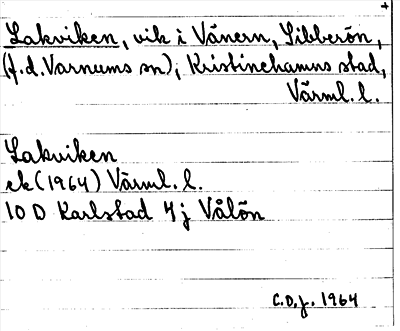 +
Lakviken, vik i Vänern, Sibberön,
(f.d. Varnums sn), Kristinehamns stad,
Värml. l.
Lakviken
ek (1964) Värml. l.
10 D Karlstad 4j Vålön
C.D.J. 1964